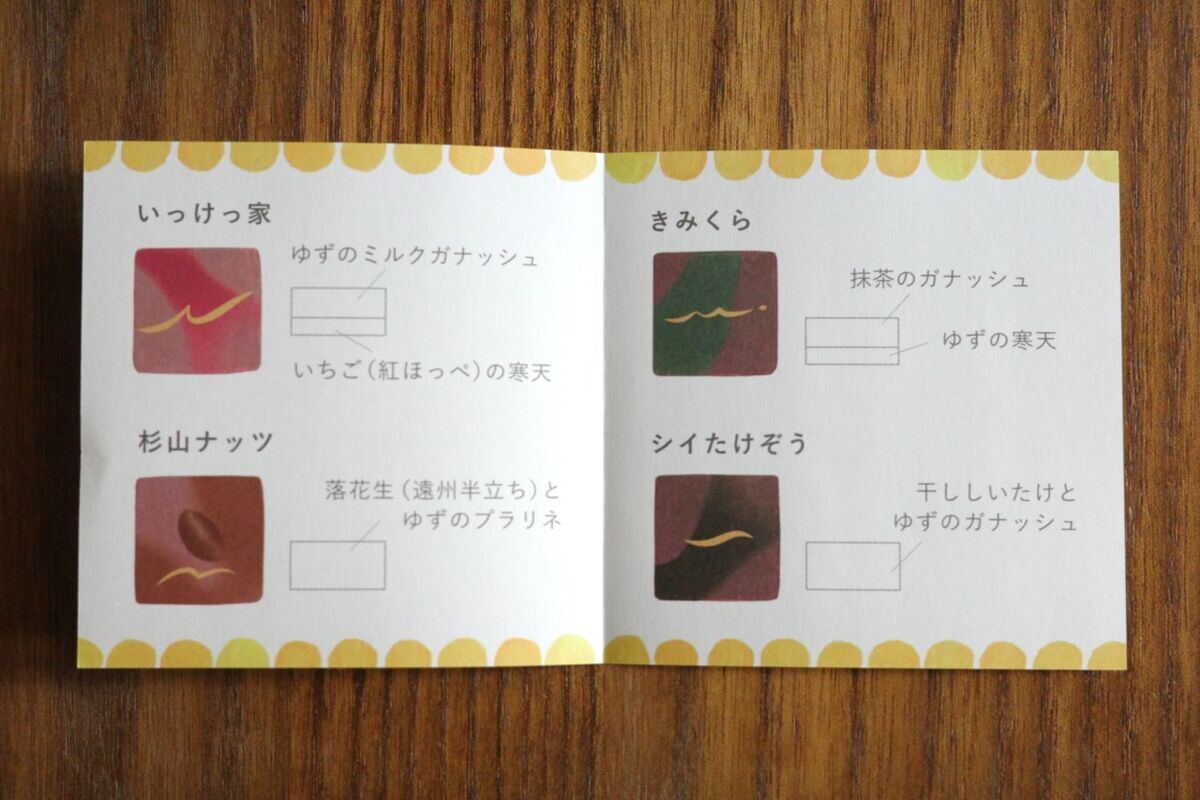 いっけっ家
ゆずのミルクガナッシュ
いちご(紅ほっぺ)の寒天
杉山ナッツ
落花生(遠州半立ち)と
ゆずのプラリネ
きみくら
抹茶のガナッシュ
ゆずの寒天
シイたけぞう
干ししいたけと
ゆずのガナッシュ